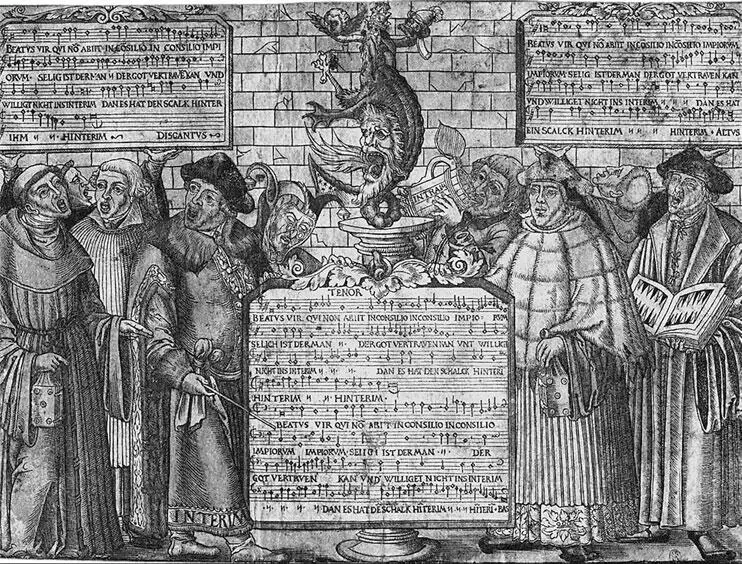 BEATVS VIR QVI NŌ ABIIT INCŌSILIO IN CONSILIO IMPI
ORVM · SELIG IST DER MAN ꟽ DER GOT VERTRAVEN KAN VND
WILLIGT NICHT INS INTERIM DAN ES HAT DEN SCALK HINTER
IHM ꟽ ꟽ HINTERIM DISCANTVS
BEATVS VIR QVI NŌ ABIIT INCŌSILIO INCŌSILIO IMPIORVM
IMPIORVM SELIG IST DER MAN DER GOT VERTRAVEN KAN
VND WILLIGET NICHT INS INTERIM DAN ES HAT
EIN SCALCK HINTERIM HINTERIM · ALTVS
INTRAT
TENOR
BEATVS VIR QVI NON ABIIT INCONSILIO INCONSILIO IMPIO · RVM
SELICH IST DER MAN DER GOT VERTRAVEN KAN VNT WILLIGT
NICHT INS INTERIM DAN ES HAT DEN SCHALCK HINTERI
HINTERIM HINTERIM ·
BEATVS VIR QVI NŌ ABIIT INCONSILIO INCONSILIO
IMPIORVM IMPIORVM SELIG IST DER MAN DER
GOT VERTRVEN KAN VND WILLIGET NICHT INS INTERIM
DAN ES HAT DE SCHALK HITERIM HITERI · BAS
INTERIM